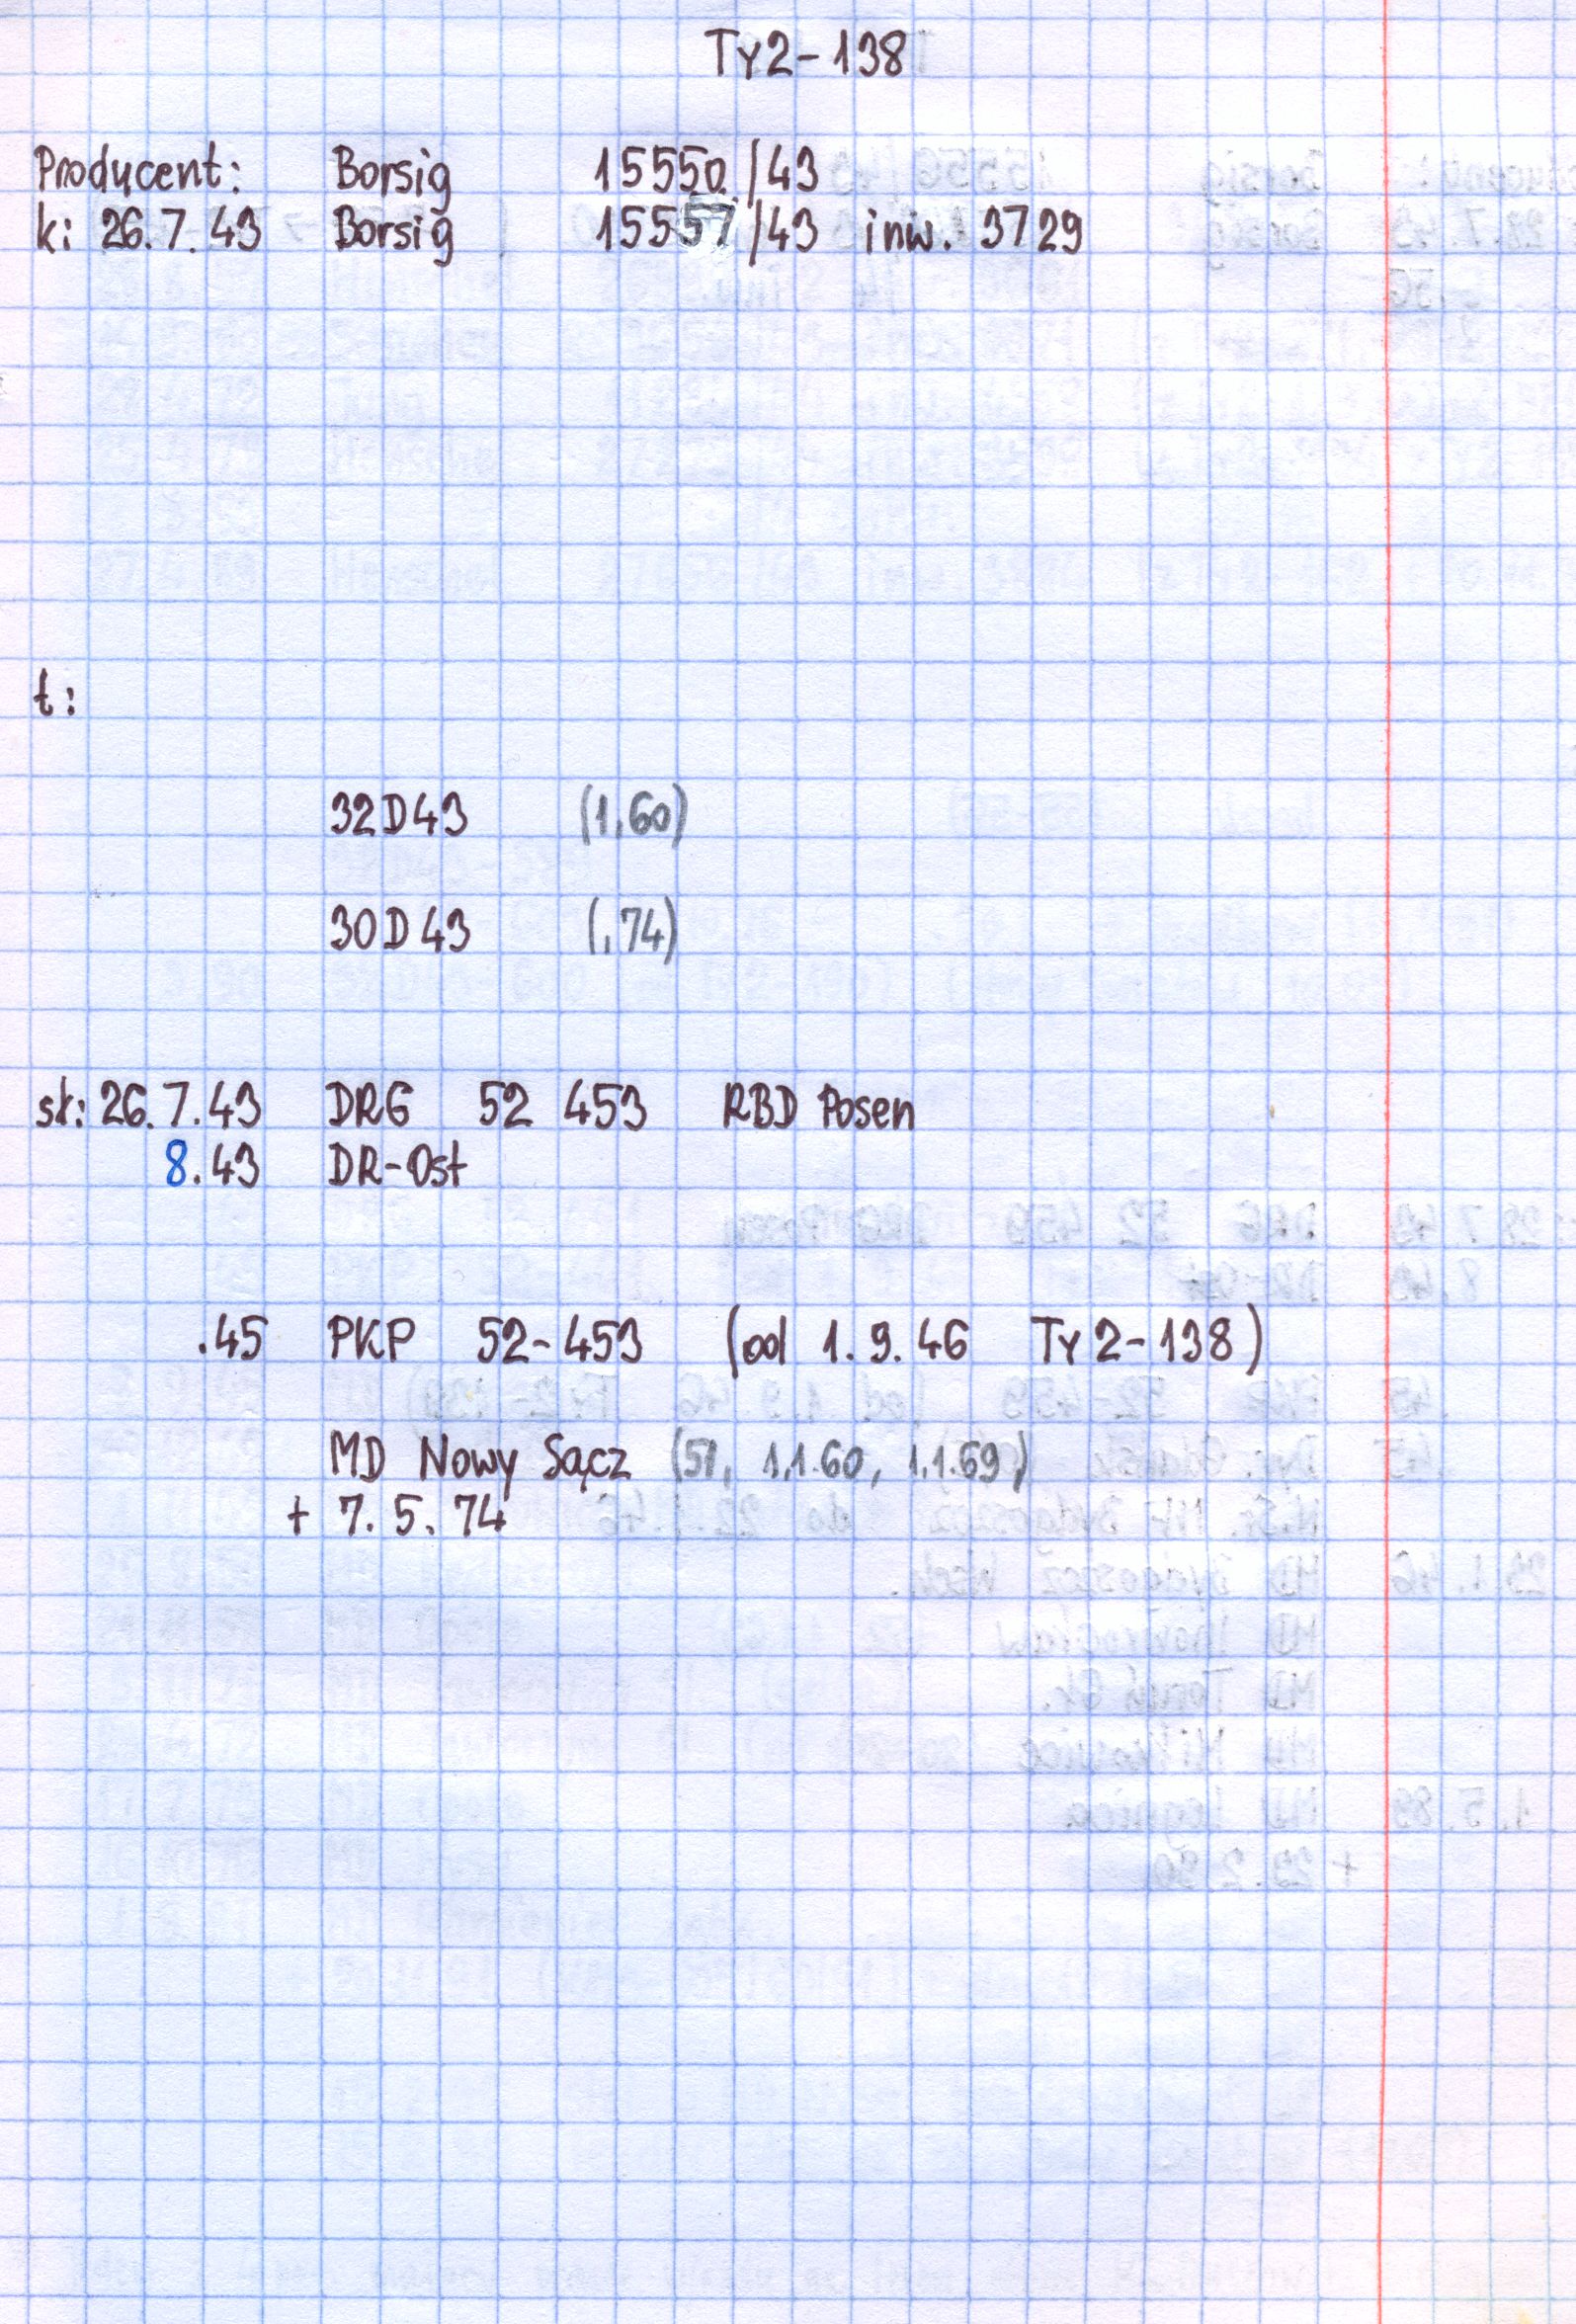 Ty2-138
Producent: Borsig 15550/43
k: 26.7.43 Borsig 15557/43 inw. 3729
t:
32D43 (1.60)
30D43 (.74)
st: 26.7.43 DRG 52 453 RBD Posen
8.43 DR-Ost
.45 PKP 52-453 (od 1.9.46 Ty2-138)
MD Nowy Sącz (51, 1.1.60, 1.1.69)
+ 7.5.74